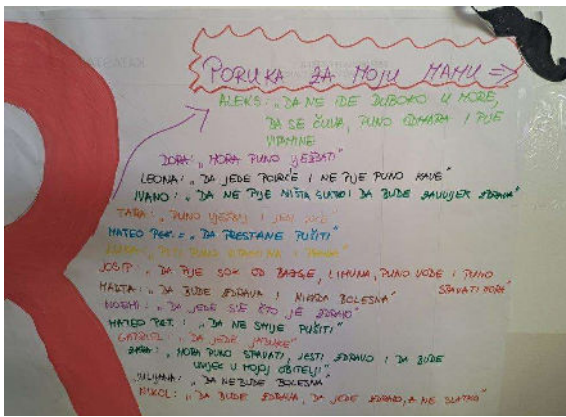 PORUKA ZA MOJU MAMU =>
ALEKS: „DA NE IDE DUBOKO U MORE,
DA SE ČUVA, PUNO ODMARA I PIJE
VITAMINE
DORA: „MORA PUNO VJEŽBATI“
LEONA: „DA JEDE POVRĆE I NE PIJE PUNO KAVE“
IVANO: „DA NE PIJE NIŠTA SLATKO I DA BUDE ZAUVIJEK ZDRAVA“
TARA: „PUNO VJEŽBAJ I JEDI VOĆE“
MATEO PEK.: „DA PRESTANE PUŠITI“
PITI PUNO VITAMINA I
JOSIP: „DA PIJE SOK OD BAZGE, LIMUNA, PUNO VODE I PUNO
SPAVATI MORA“
MALTA: „DA BUDE ZDRAVA I NIKADA BOLESNA“
NOEMI: „DA JEDE SVE ŠTO JE ZDRAVO“
MATEO PET.: „DA NE SMIJE PUŠITI“
GABRIEL: „DA JEDE JABUKE“
ZARA: „MORA PUNO SPAVATI, JESTI ZDRAVO I DA BUDE
UVIJEK U MOJOJ OBITELJI“
JULIJANA: „DA NE BUDE BOLESNA“
NIKOL: „DA BUDE ZDRAVA, DA JEDE ZDRAVO, A NE SLATKO“